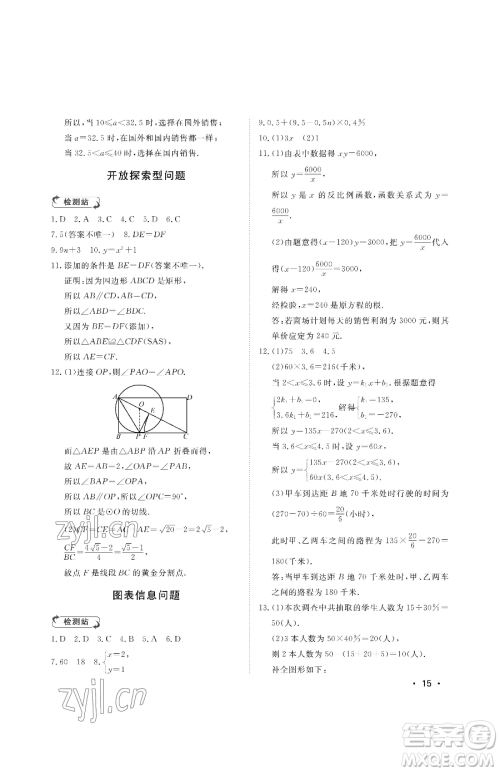 所以,当 10≤a<32.5 时,选择在国外销售;
当 a=32.5 时,选择在国外和国内销售都一样;
当 32.5<a≤40 时,选择在国内销售.
开放探索型问题
检测站
1.D 2.A 3.C 4.C 5.D 6.D
7.5(答案不唯一) 8.DE=DF
9.9n+3 10.y=x²+1
11.添加的条件是 BE=DF(答案不唯一).
证明:因为四边形 ABCD 是矩形,
所以 AB∥CD,AB=CD.
所以∠ABD=∠BDC.
又因为 BE=DF(添加),
所以△ABE≌△CDF(SAS).
所以 AE=CF.
12.(1)连接 OP,则∠PAO=∠APO.
A D O E B P F C
而△AEP 是由△ABP 沿 AP 折叠而得,
故 AE=AB=4,∠OAP=∠PAB.
所以∠APO=∠PAB.所以 AB∥OP.
所以∠OPC=90°.
所以 BC 是⊙O 的切线.
(2)CF=CE=AC-AE=√20-2=2√5-2,
CF/BC=(4√5-2)/4=(√5-1)/2.
故点 F 是线段 BC 的黄金分割点.
图表信息问题
检测站
1.D 2.D 3.A 4.C 5.B 6.D
7.60 18 8.{x=2, y=1
9.0.5+(9.5-0.5n)×0.4%
10.(1)3x (2)1
11.(1)由表中数据得 xy=6000,
所以 y=6000/x.
所以 y 是 x 的反比例函数,所求函数关系式为 y=6000/x.
(2)由题意得(x-120)y=3000,把 y=6000/x 代入
得(x-120)·6000/x=3000,
解得 x=240,
经检验,x=240 是原方程的根.
答:若商场计划每天的销售利润为 3000 元,则其单价应定为 240 元.
12.(1)75 3.6 4.5
(2)60×3.6=216(千米),
当 2<x≤3.6 时,设 y=k₁x+b₁,根据题意得
{2k₁+b₁=0, 3.6k₁+b₁=216, 解得{k₁=135, b₁=-270.
所以 y=135x-270(2<x≤3.6);
当 3.6<x≤4.5 时,设 y=60x.
所以 y={135x-270(2<x≤3.6), 60x(3.6<x≤4.5).
(3)甲车到达距 B 地 70 千米处时行驶的时间为
(270-70)÷60=20/6(小时),
此时甲、乙两车之间的路程为 135×20/6-270=
180(千米).
答:当甲车到达距 B 地 70 千米处时,甲、乙两车之间的路程为 180 千米.
13.(1)本次调查中共抽取的学生人数为 15÷30%=
50(人).
(2)3 本人数为 50×40%=20(人),
则 2 本人数为 50-(15+20+5)=10(人),
补全图形如下:
· 15 ·
zyjl.cn
zyjl.cn
答案圈
MXQE.COM